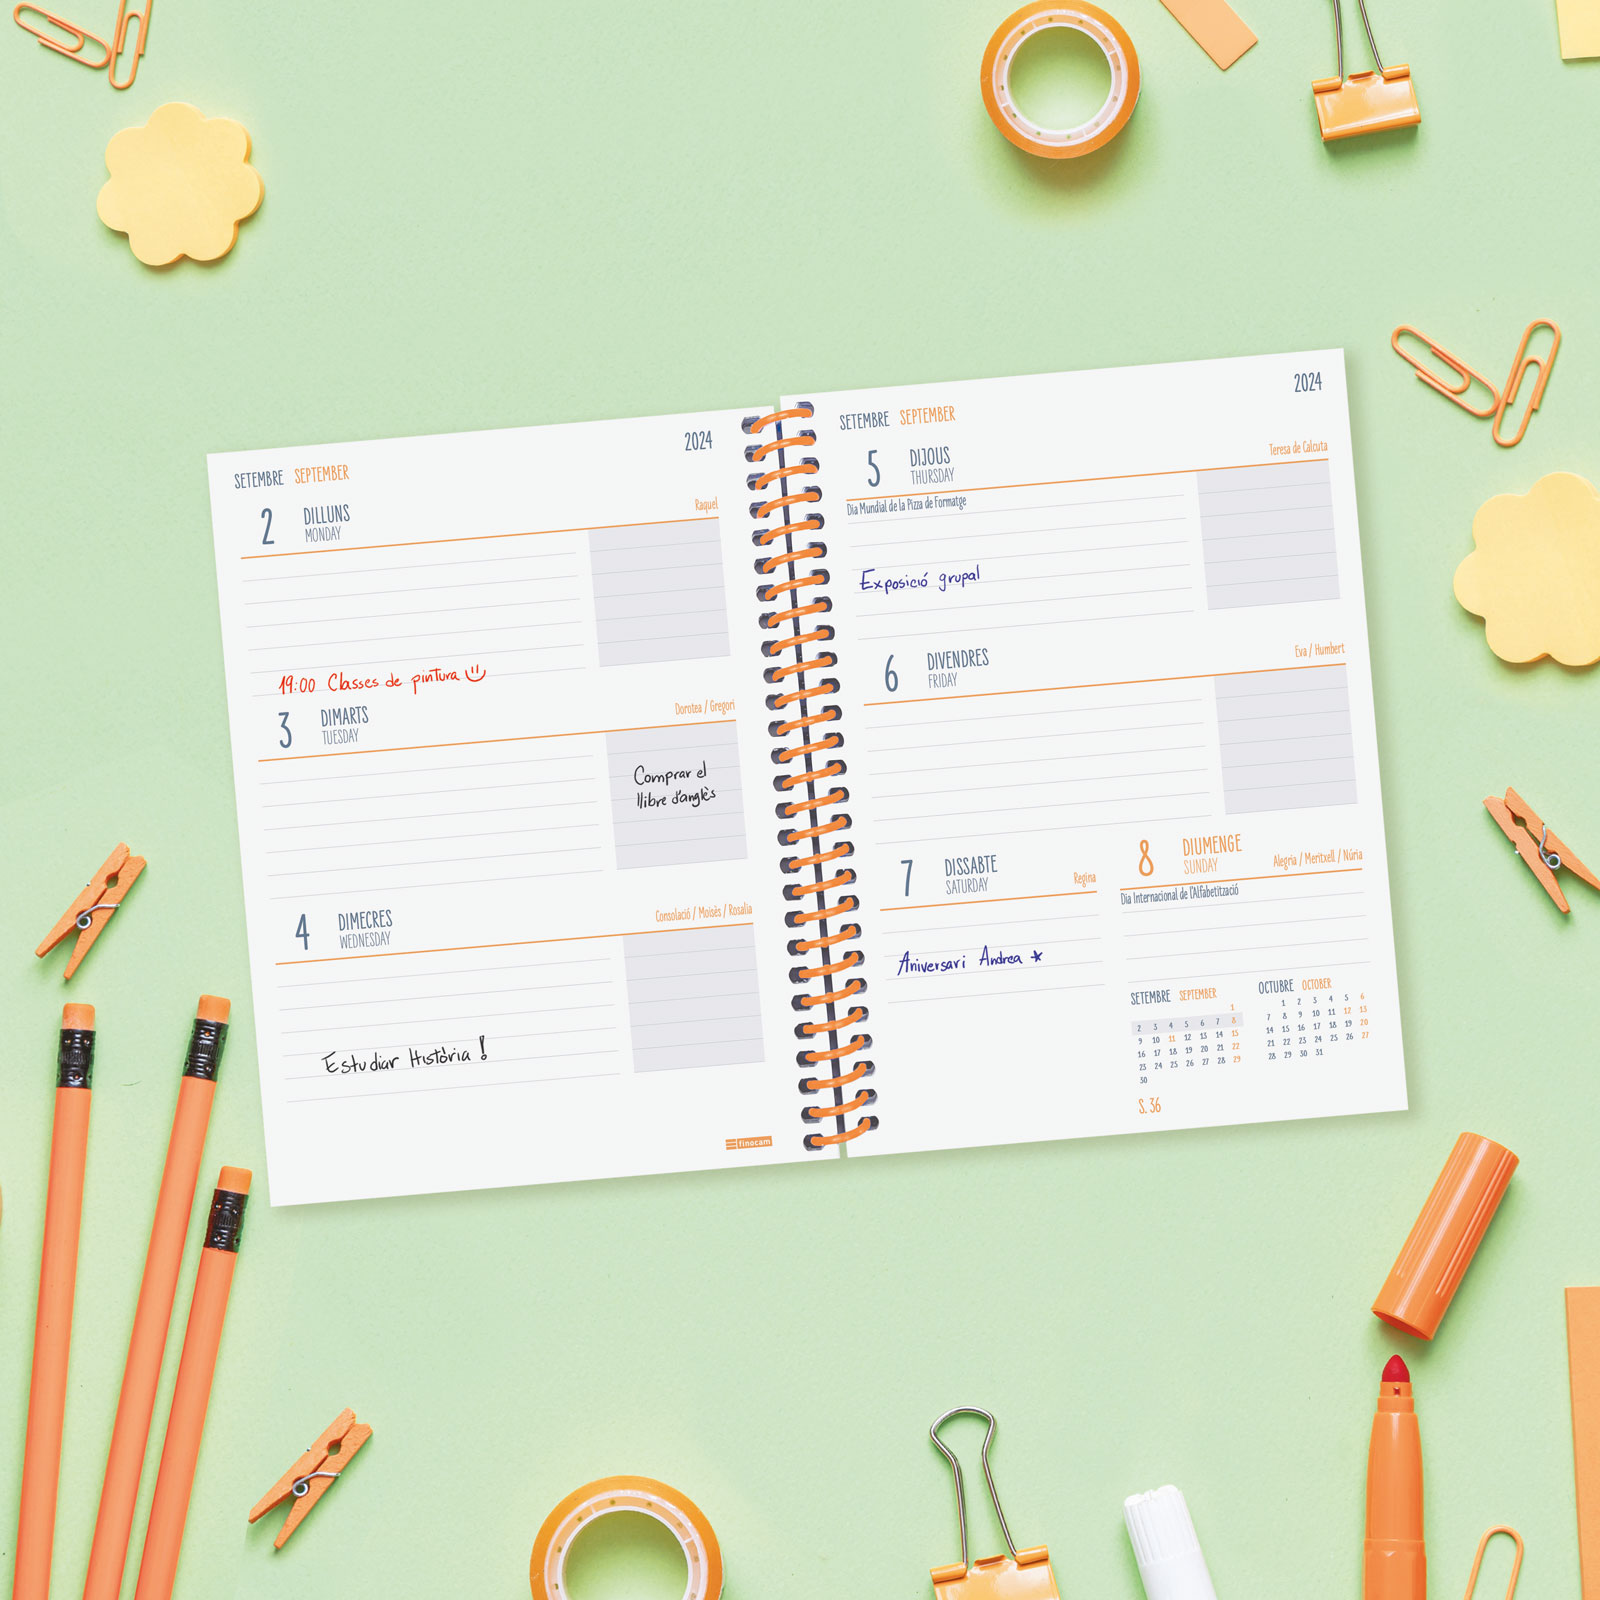 2024
SETEMBRE SEPTEMBER
2 DILLUNS
MONDAY
Raquel
19:00 Classes de pintura
3 DIMARTS
TUESDAY
Dorotea / Gregori
Comprar el
llibre d'anglès
4 DIMECRES
WEDNESDAY
Consolació / Moisès / Rosalia
Estudiar Història !
finocam
2024
SETEMBRE SEPTEMBER
5 DIJOUS
THURSDAY
Teresa de Calcuta
Dia Mundial de la Pizza de Formatge
Exposició grupal
6 DIVENDRES
FRIDAY
Eva / Humbert
7 DISSABTE
SATURDAY
Regina
Aniversari Andrea
8 DIUMENGE
SUNDAY
Alegria / Meritxell / Núria
Dia Internacional de l'Alfabetització
SETEMBRE SEPTEMBER
1
2 3 4 5 6 7 8
9 10 11 12 13 14 15
16 17 18 19 20 21 22
23 24 25 26 27 28 29
30
OCTUBRE OCTOBER
1 2 3 4 5 6
7 8 9 10 11 12 13
14 15 16 17 18 19 20
21 22 23 24 25 26 27
28 29 30 31
S. 36